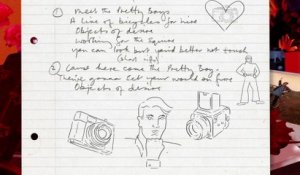 ① Meet the Pretty Boys
A line of bicycles for hire
Objects of desire
Working for the square
You can look but you'd better not touch
② 'Cause here come the Pretty Boys
They're gonna set your world on fire
Objects of desire